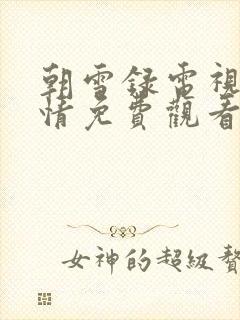 朝雪錄電視
情免費觀看
女神的超級贅